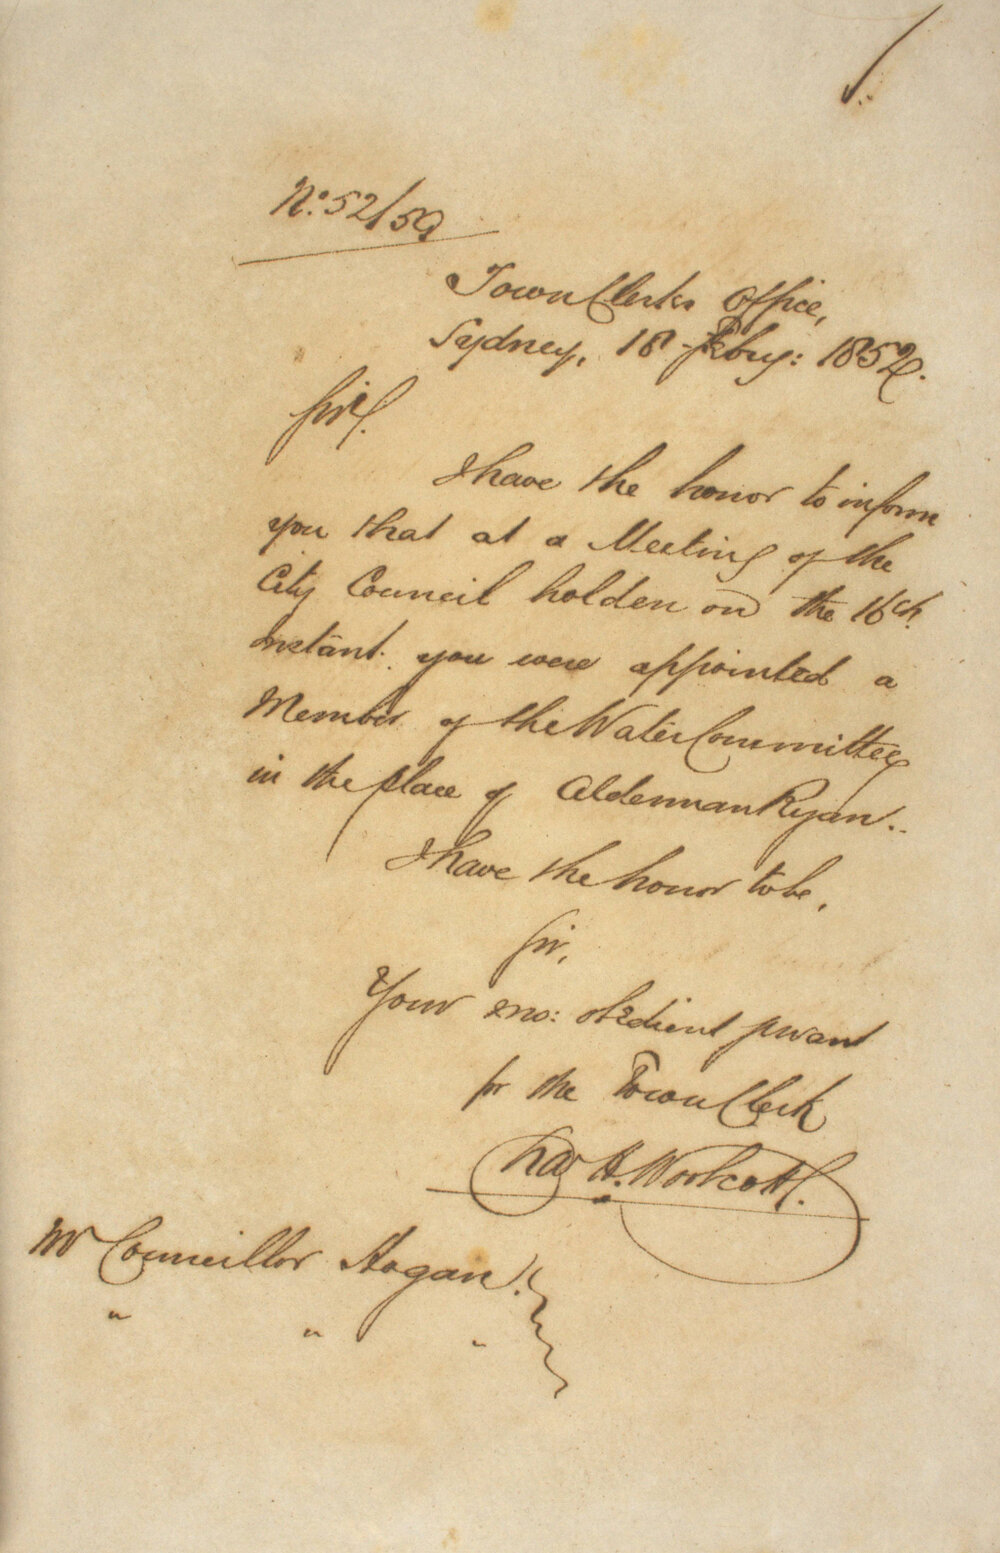 No. 52/59
Town Clerks Office,
Sydney, 18 Feby: 1852.
Sir,
I have the honor to inform
you that at a Meeting of the
City Council holden on the 16th
Instant you were appointed a
Member of the Water Committee
in the place of Alderman Ryan..
I have the honor to be,
Sir,
Your mo: obedient servant
for the Town Clerk
Chas H. Woolcott.
Mr Councillor Hogan.
" " "